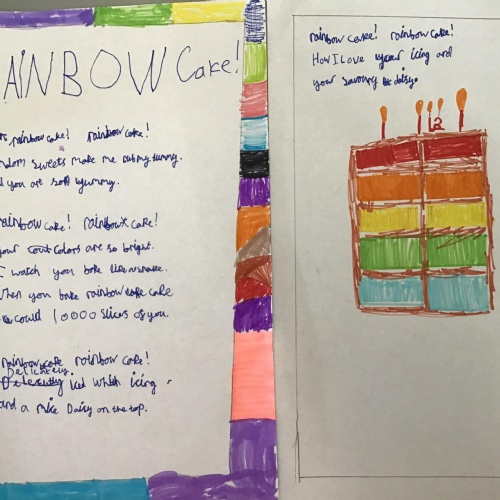 RAINBOW Cake!
rainbow cake! rainbow cake!
random sweets make me rub my tummy.
you are so yummy.
rainbow cake! rainbow cake!
your colors are so bright.
I watch you bake like a snake.
when you bake rainbow cake
could 10000 slices of you.
rainbow cake rainbow cake!
Delicately
iced with icing
and a nice Daisy on the top.
rainbow cake! rainbow cake!
How I love your icing and
your savoury daisy.
12